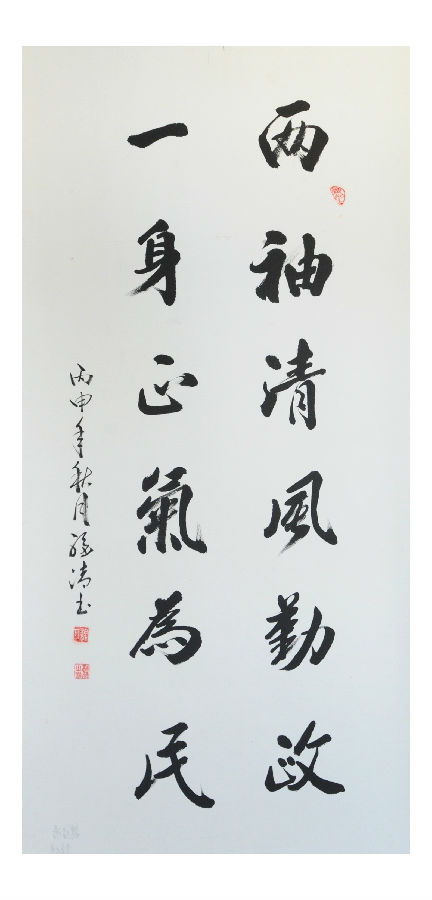 两袖清风勤政
一身正氣為民
丙申年秋月孫清书